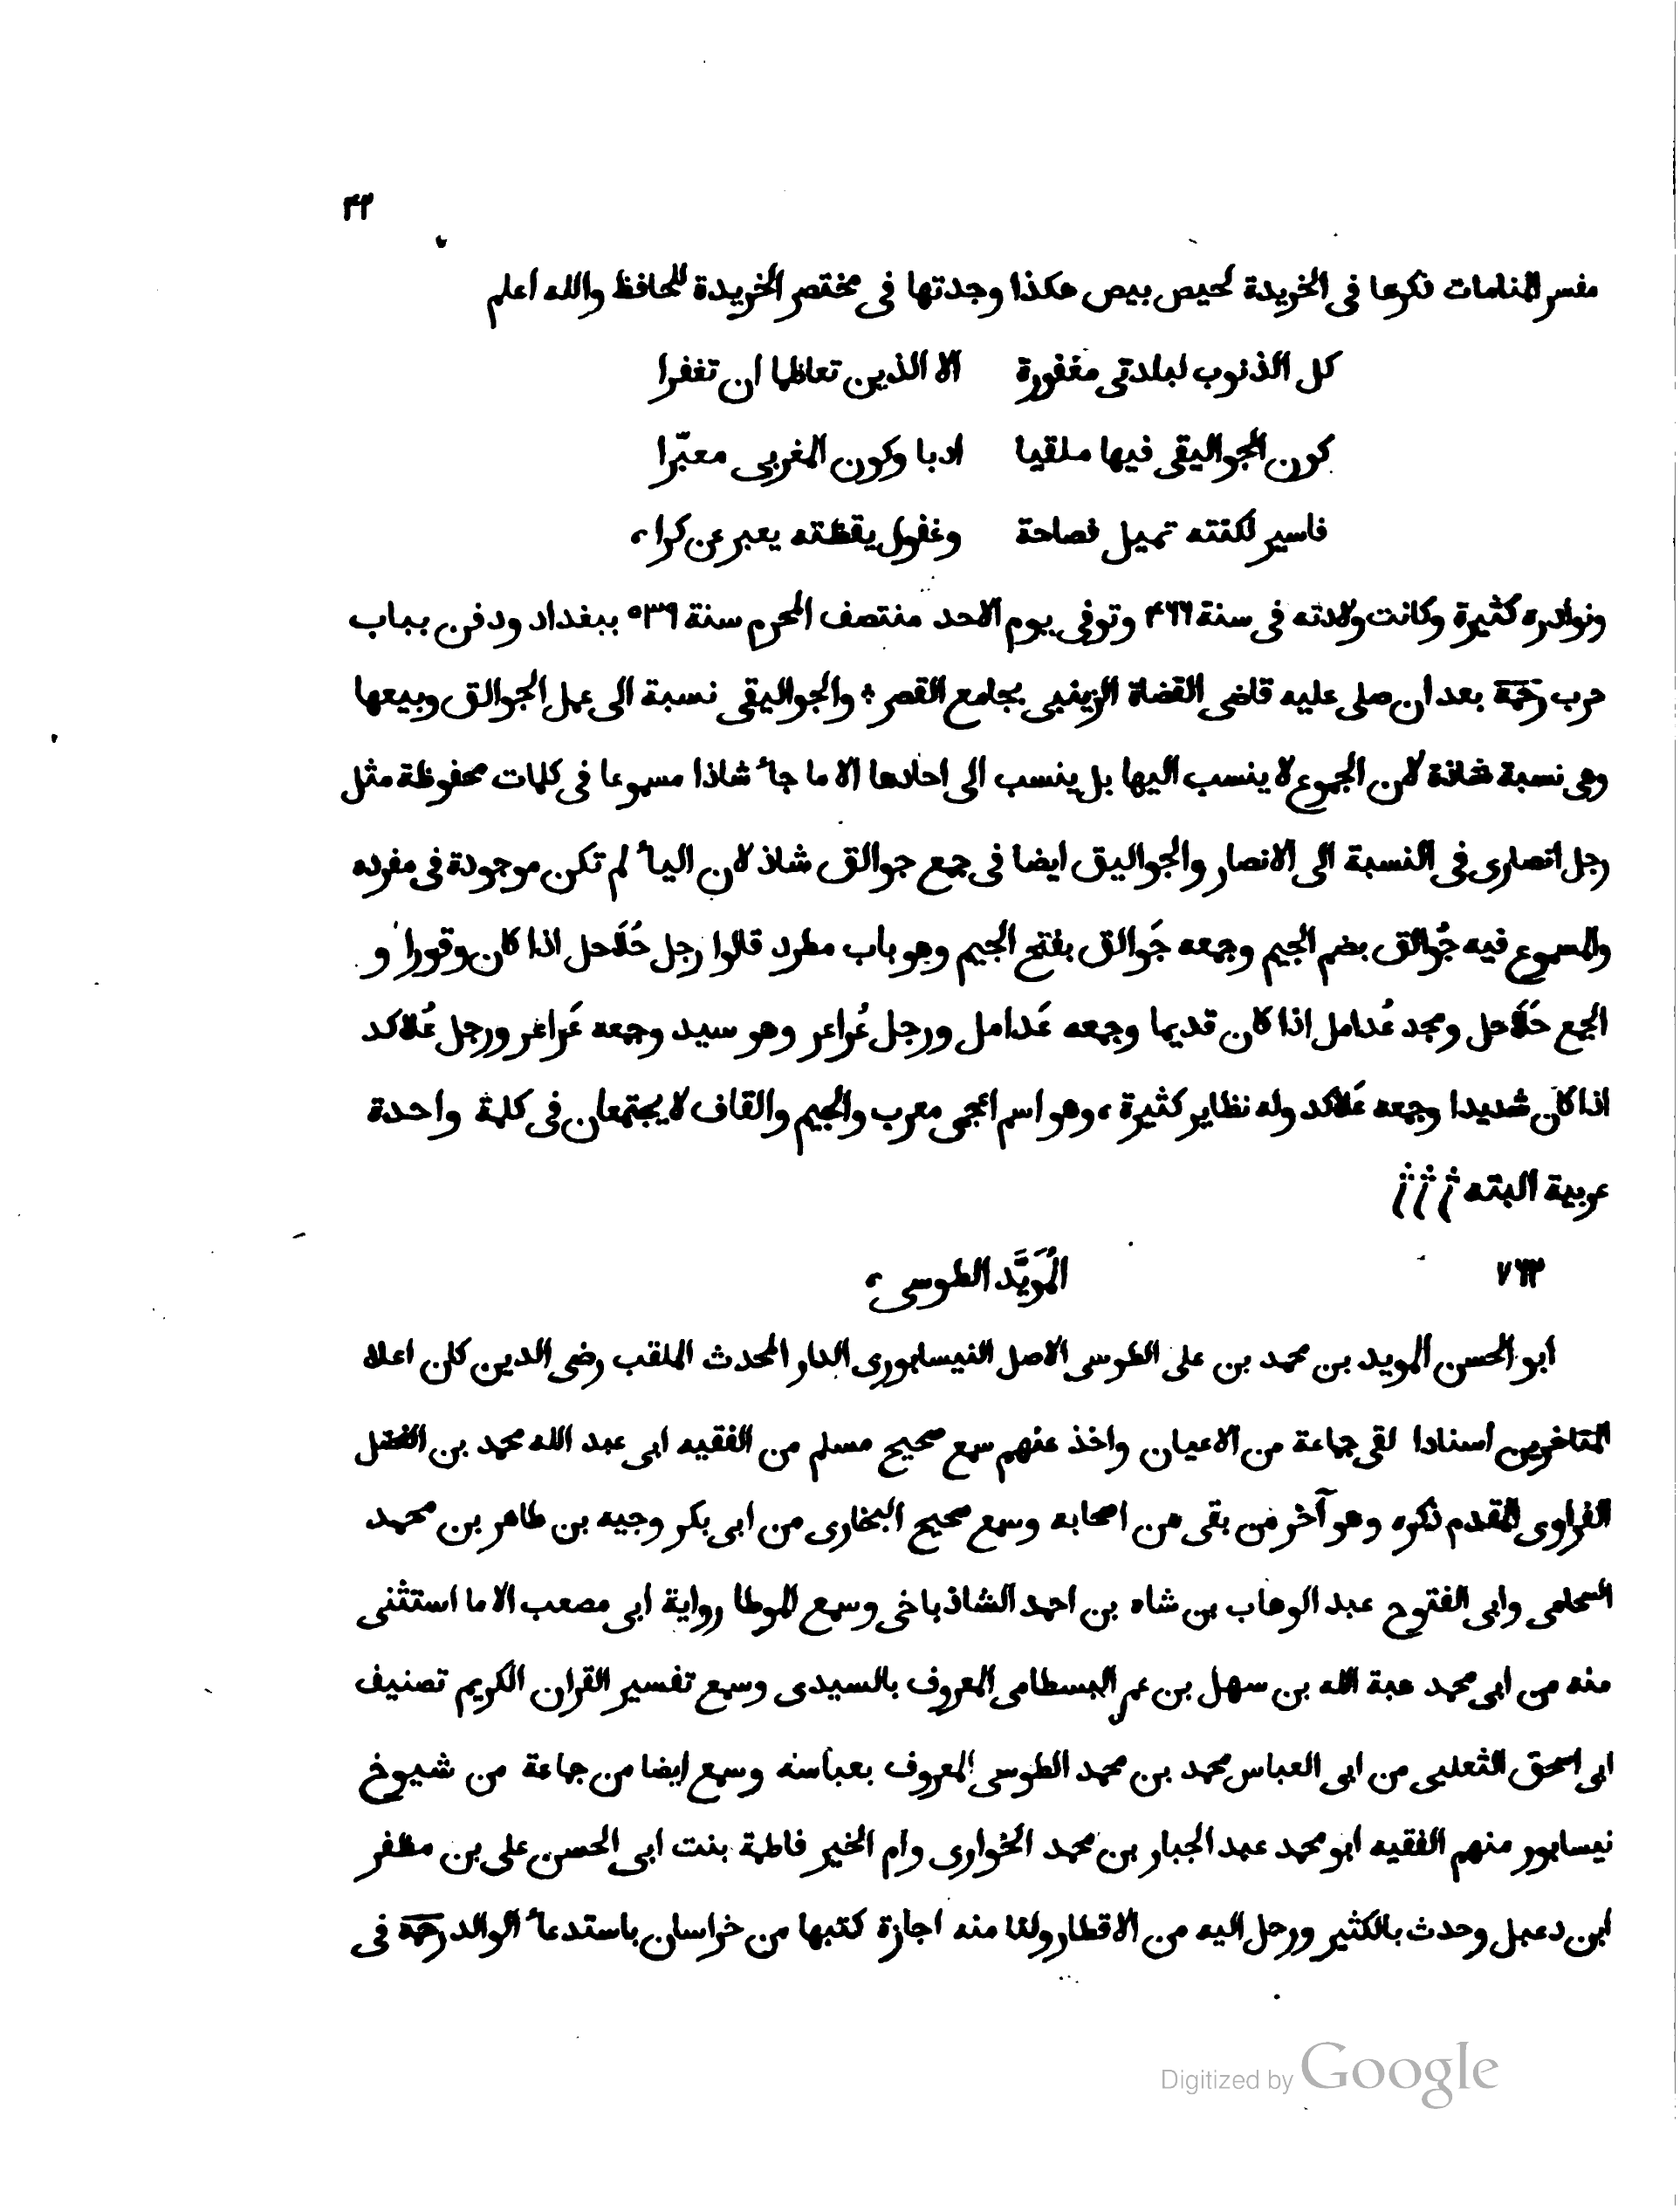 ٤٣
مفسر المنامات ذكرها فى الخريدة لحيص بيص هكذا وجدتها فى مختصر الخريدة للحافظ والله اعلم
كل الذنوب لبلدتى مغفورة الا الذين تعاظما ان تغفرا
كون الجواليقى فيها ملقيا ادبا وكون المغربى معبّرا
فاسير لكنته تميل فصاحة وغفول يقظته يعبر عن كرا ،
ونوادره كثيرة وكانت ولادته فى سنة ٤٦٦ وتوفى يوم الاحد منتصف المحرم سنة ٥٣٩ ببغداد ودفن بباب
حرب رحمة بعد ان صلى عليه قاضى القضاة الزينبى بجامع القصر ؛ والجواليقى نسبة الى عمل الجوالق وبيعها
وهى نسبة شاذة لان الجموع لا ينسب اليها بل ينسب الى احادها الا ما جاء شاذا مسموعا فى كلمات محفوظة مثل
رجل انصارى فى النسبة الى الانصار والجواليق ايضا فى جمع جوالق شاذ لان الياء لم تكن موجودة فى مفرده
والمسموع فيه جُوالق بضم الجيم وجمعه جَوالق بفتح الجيم وهو باب مطرد قالوا رجل حُلَاحل اذا كان وقورا و
الجمع حَلَاحل ومجد عُدامل اذا كان قديما وجمعه عَدامل ورجل عُراعر وهو سيد وجمعه عَراعر ورجل عُلاكد
اذا كان شديدا وجمعه عَلاكد وله نظاير كثيرة ، وهو اسم اعجمى معرب والجيم والقاف لا يجتمعان فى كلمة واحدة
عربية البته
٧٦٣ المُوَيَّد الطوسى ،
ابو الحسن المويد بن محمد بن على الطوسى الاصل النيسابورى الدار المحدث الملقب رضى الدين كان اعلا
المتاخرين اسنادا لقى جماعة من الاعيان واخذ عنهم سمع صحيح مسلم من الفقيه ابى عبد الله محمد بن الفضل
الفراوى المقدم ذكره وهو آخر من بقى من اصحابه وسمع صحيح البخارى من ابى بكر وجيه بن طاهر بن محمد
الشحامى وابى الفتوح عبد الوهاب بن شاه بن احمد الشاذباخى وسمع الموطا رواية ابى مصعب الا ما استثنى
منه من ابى محمد هبة الله بن سهل بن عمر البسطامى المعروف بالسيدى وسمع تفسير القران الكريم تصنيف
ابى اسحق الثعلبى من ابى العباس محمد بن محمد الطوسى المعروف بعباسه وسمع ايضا من جماعة من شيوخ
نيسابور منهم الفقيه ابو محمد عبد الجبار بن محمد الخوارى وام الخير فاطمة بنت ابى الحسن على بن مظفر
ابن دعبل وحدث بالكثير ورحل اليه من الاقطار ولنا منه اجازة كتبها من خراسان باستدعاء الوالد رحمة فى
Digitized by Google